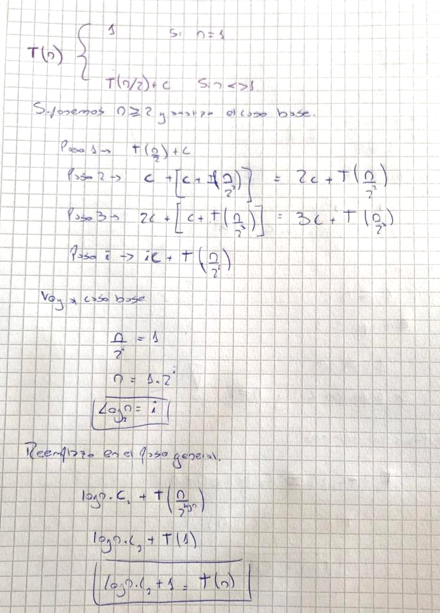 T(n) { 1 Si n=1
T(n/2)+c Si n<>1
Suponemos n≥2 y analizo el caso base.
Paso 1 → T(n/2)+c
Paso 2 → c + [c + T(n/2²)] = 2c + T(n/2²)
Paso 3 → 2c + [c + T(n/2³)] = 3c + T(n/2³)
Paso i → ic + T(n/2^i)
Voy a caso base
n/2^i = 1
n = 1.2^i
Log₂n = i
Reemplazo en el paso general.
logn.c₂ + T(n/2^logn)
logn.c₂ + T(1)
logn.c₂ + 1 = T(n)